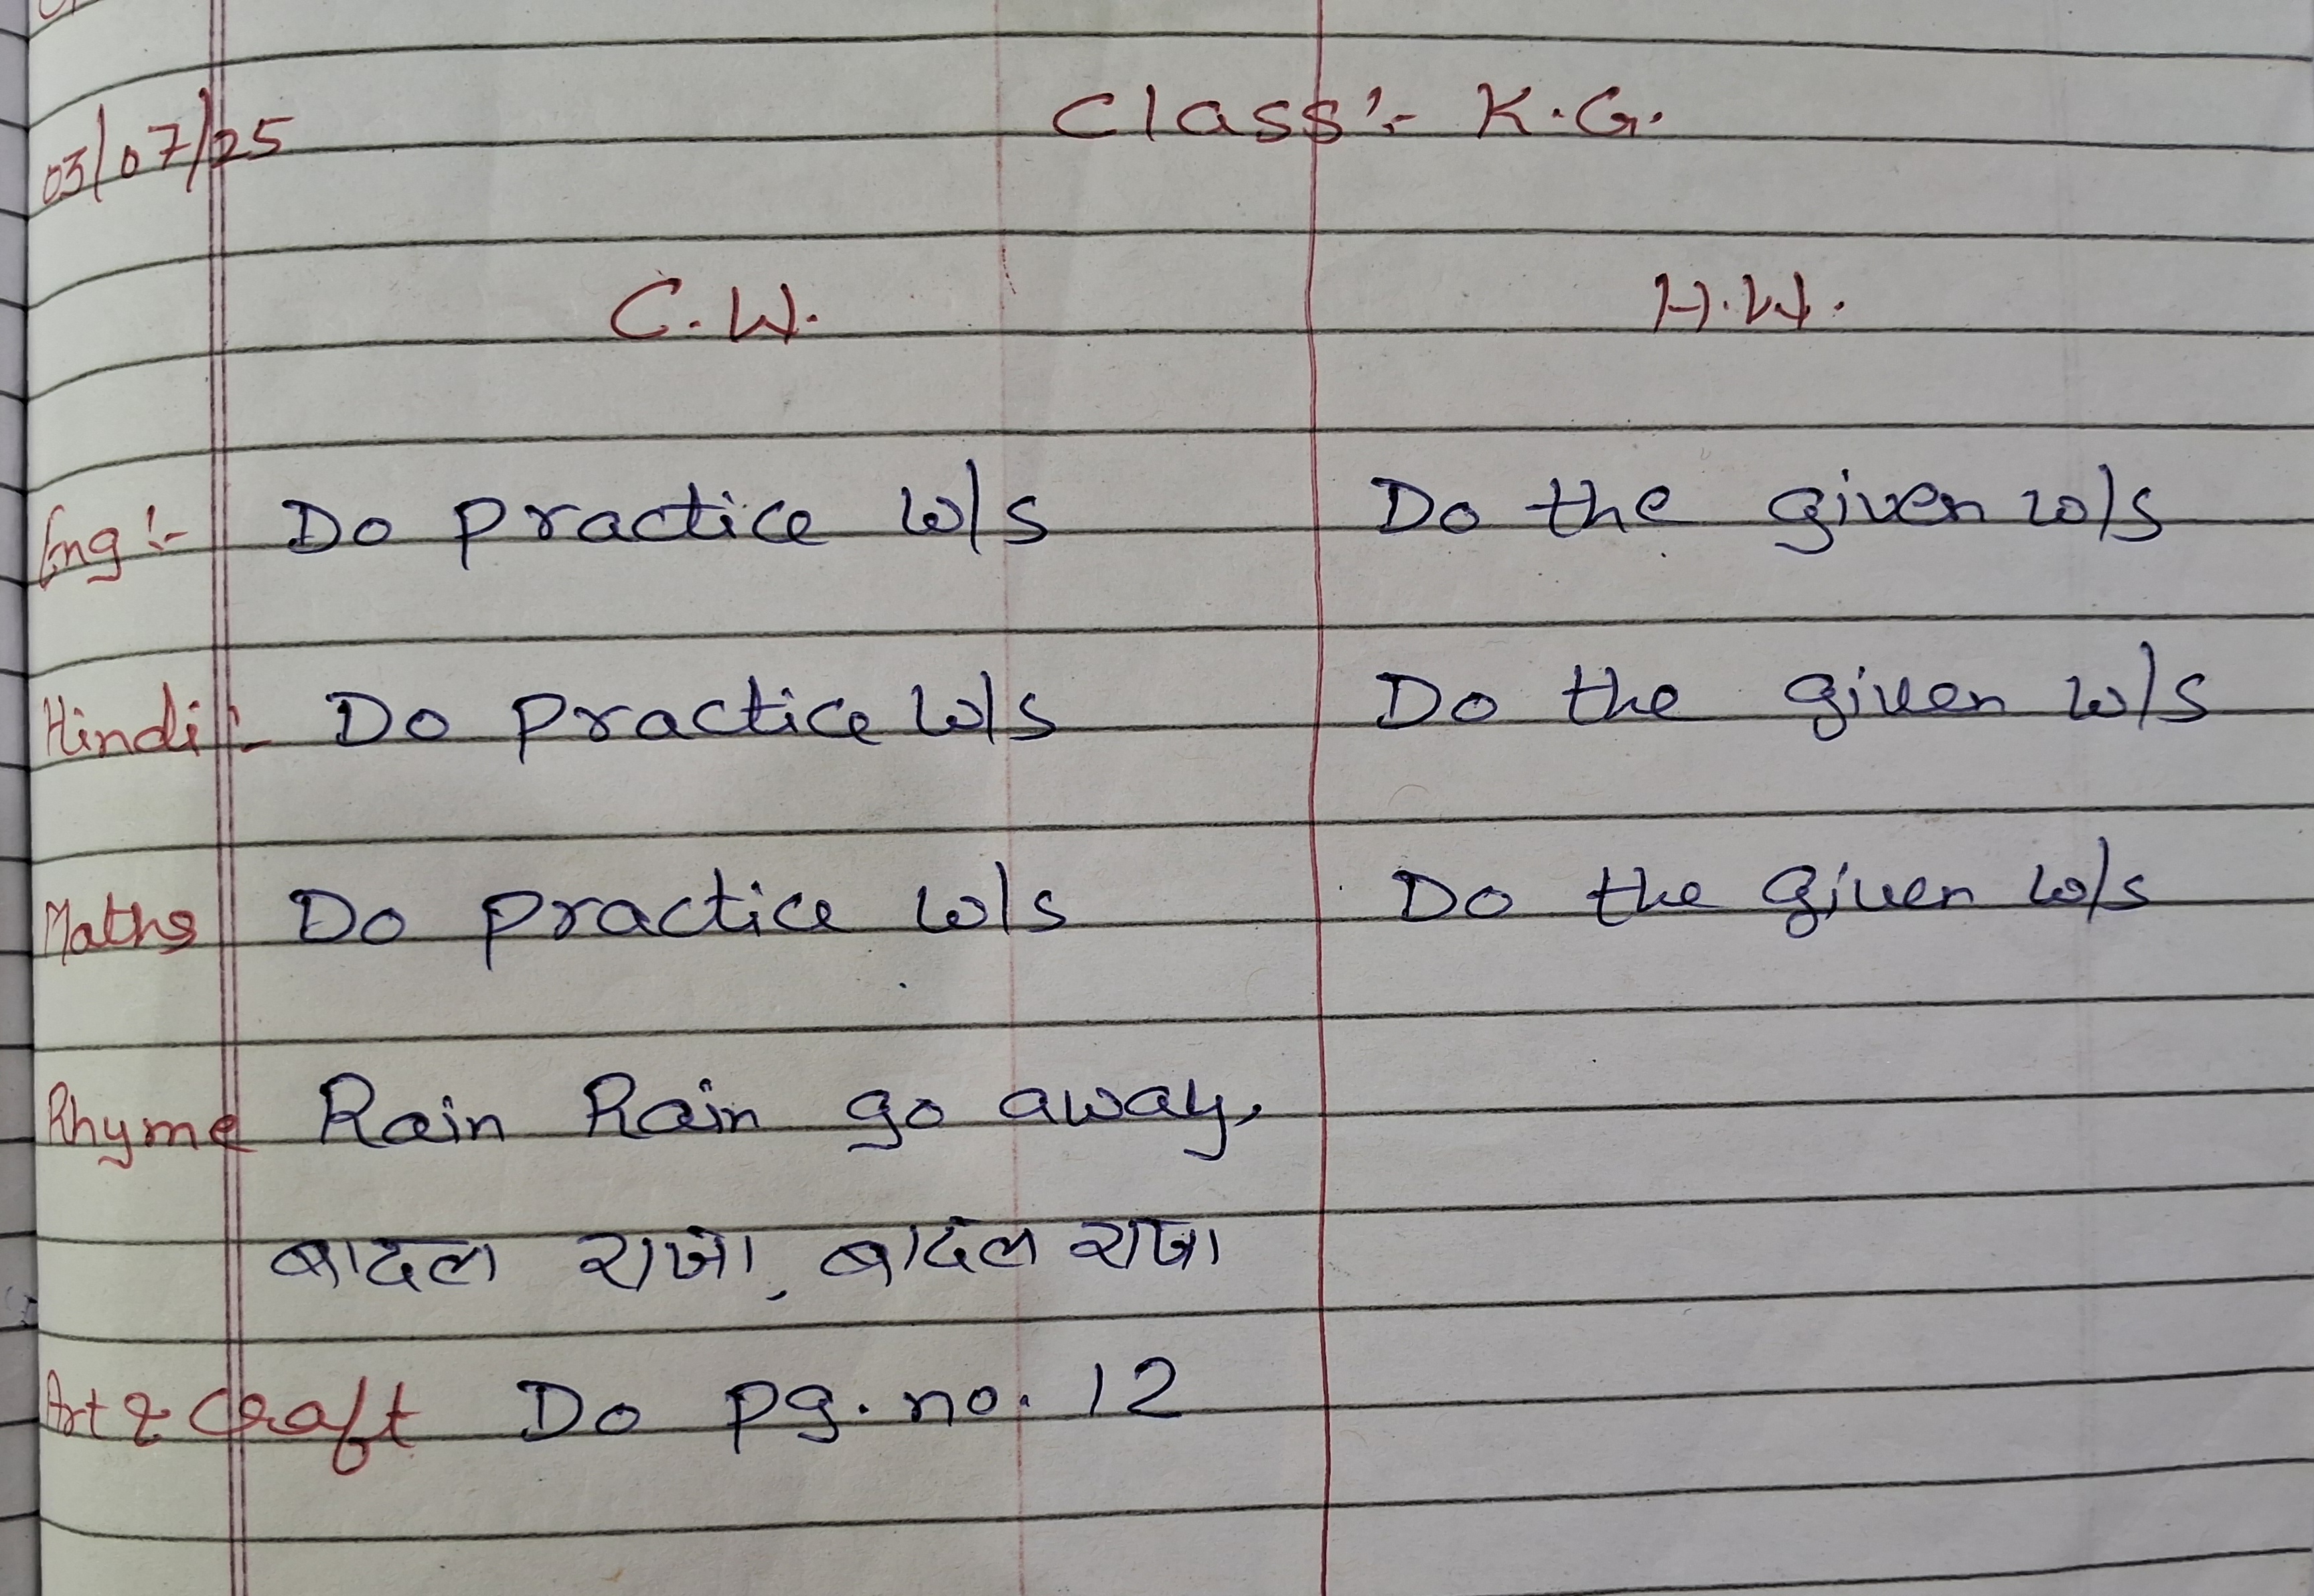 03/07/25 Class:- K.G.
C.W. H.W.
Eng:- Do practice w/s Do the given w/s
Hindi:- Do practice w/s Do the given w/s
Maths Do practice w/s Do the given w/s
Rhyme Rain Rain go away,
बादल राजा, बादल राजा
Art & Craft Do pg. no. 12